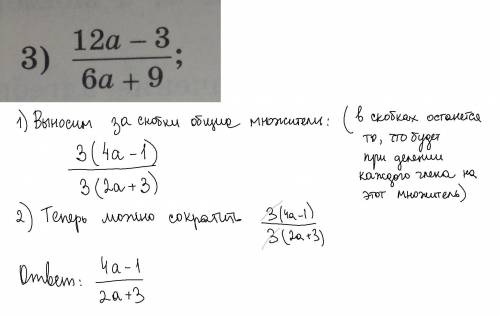 3) (12a − 3)/(6a + 9);
1) Выносим за скобки общие множители: (в скобках останется
то, что будет
при делении
каждого члена на
этот множитель)
3(4a−1)/3(2a+3)
2) Теперь можно сократить 3(4a−1)/3(2a+3)
Ответ: (4a−1)/(2a+3)